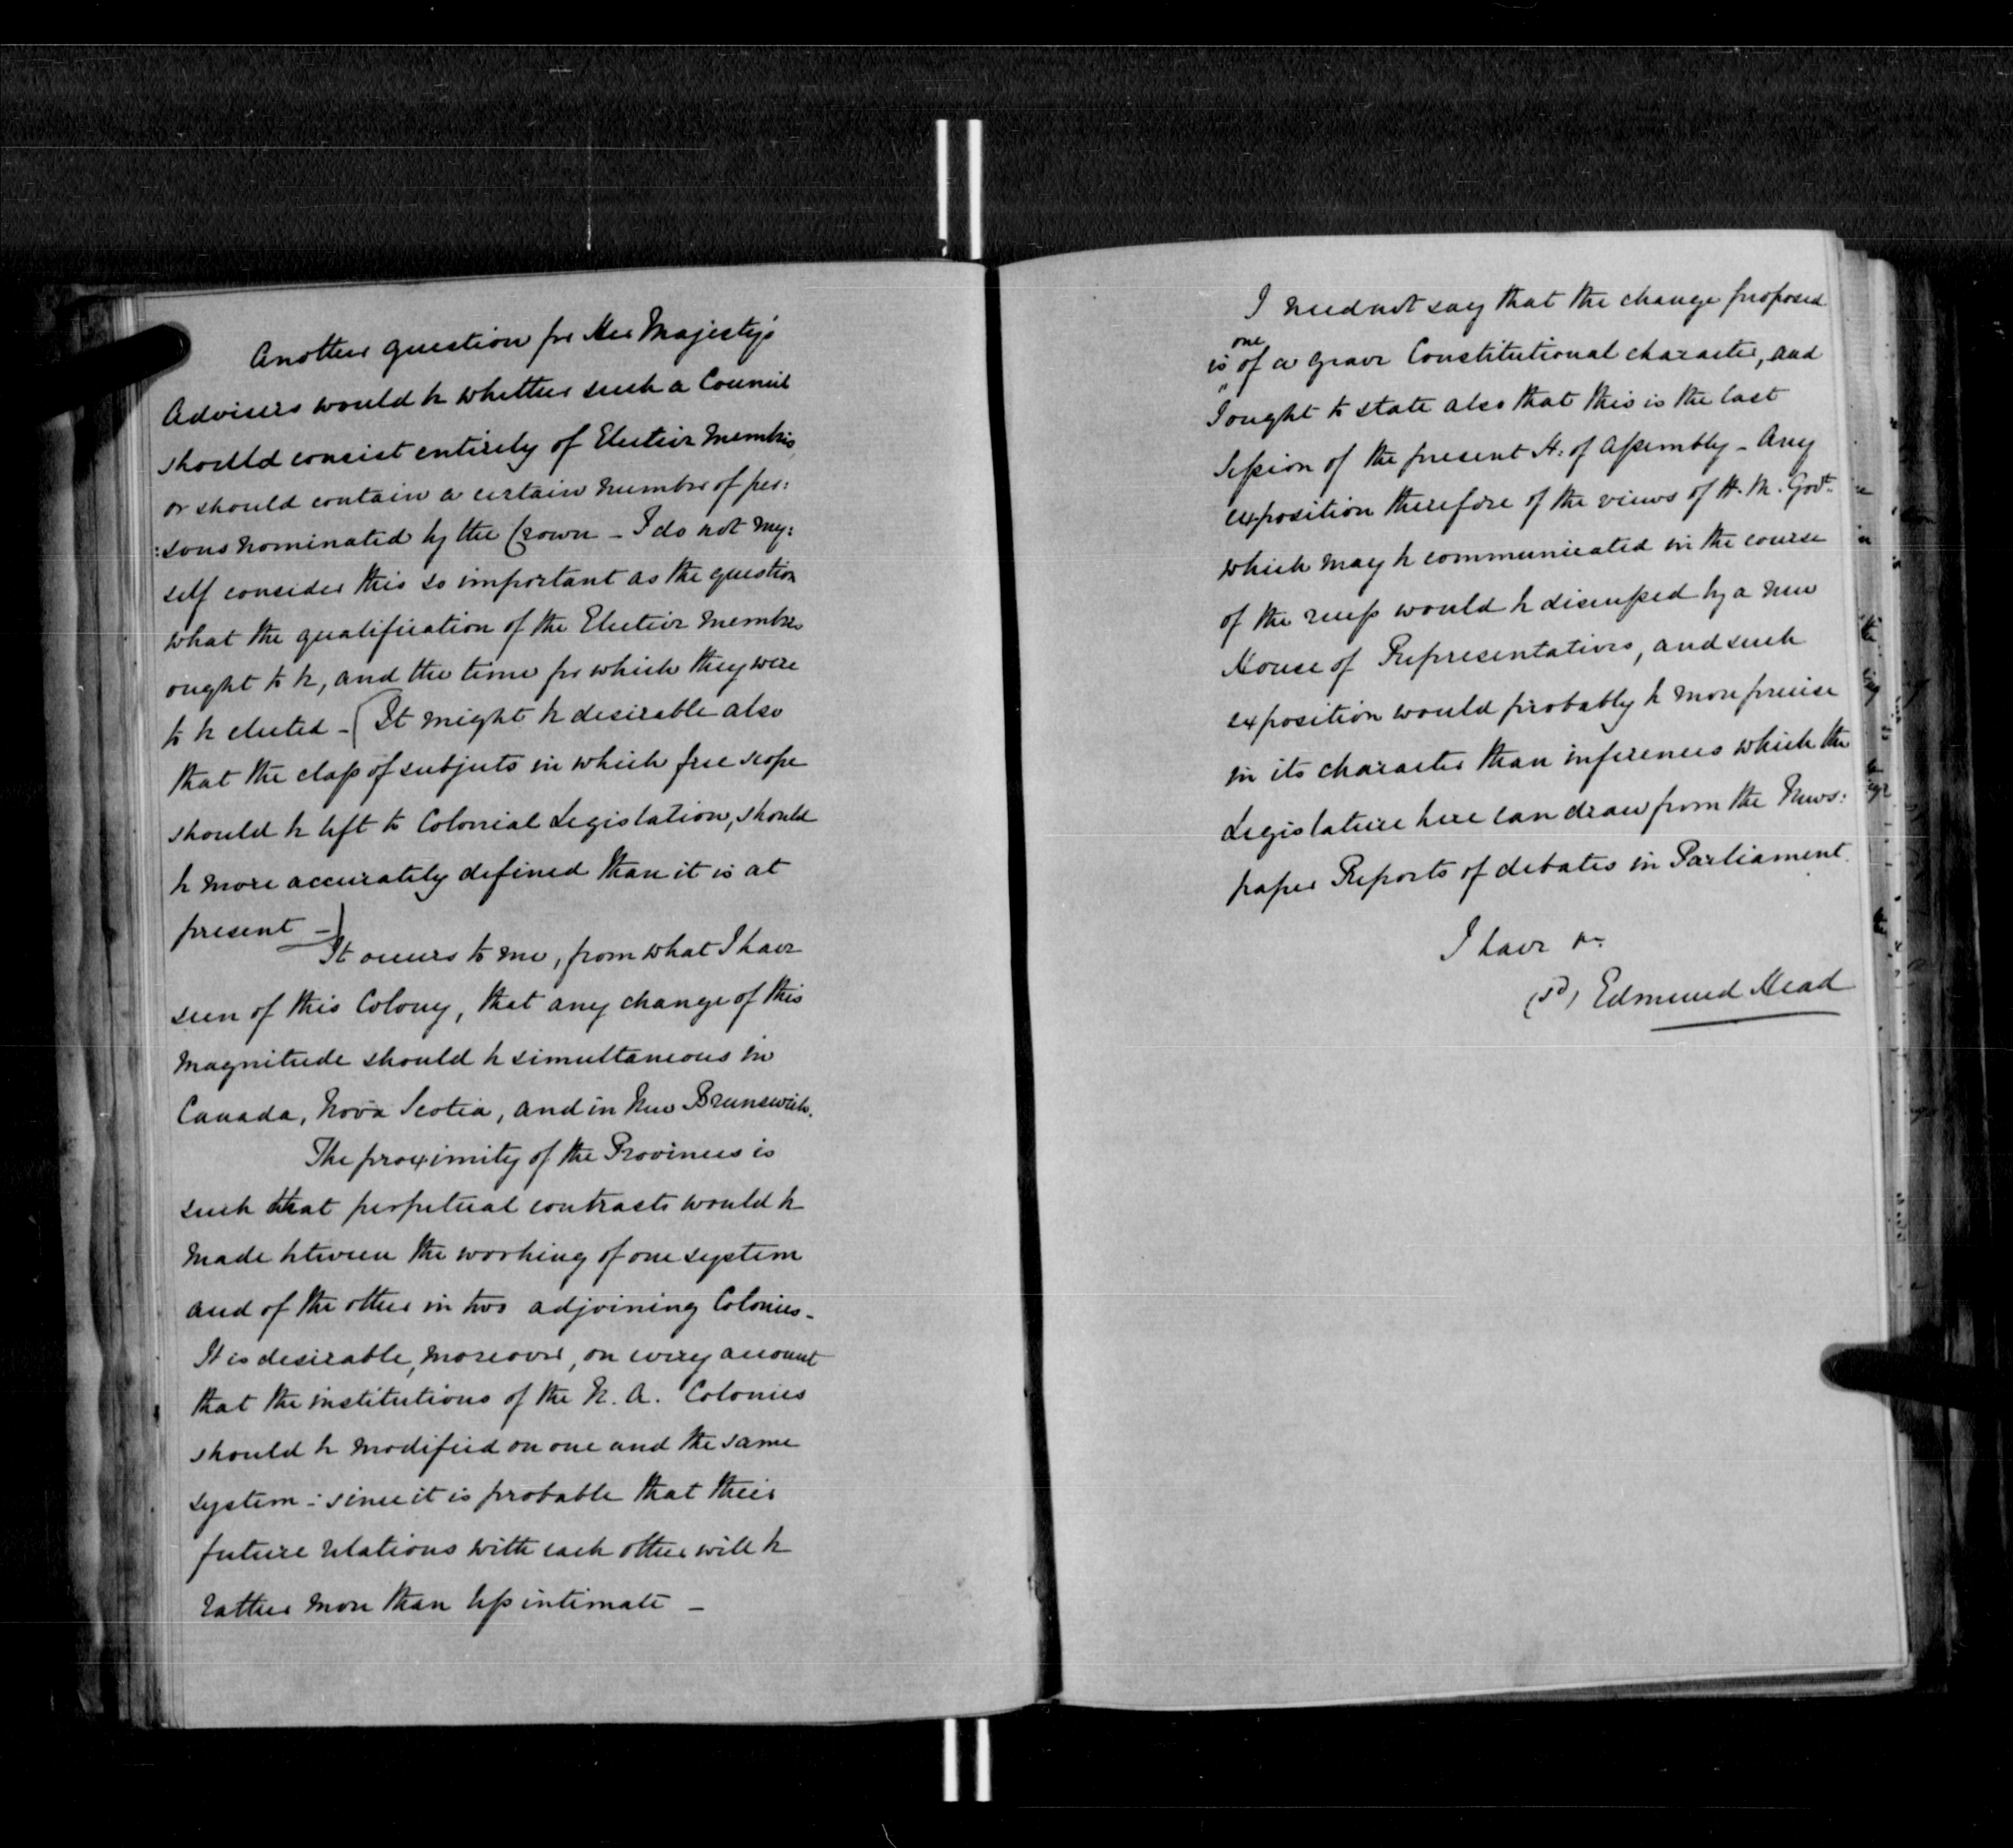 Another question for Her Majesty's
Advisers would be whether such a Council
should consist entirely of Elective Members,
or should contain a certain number of per:
:sons nominated by the Crown – I do not my:
self consider this so important as the question
what the qualification of the Elective Members
ought to be, and the time for which they were
to be elected – (It might be desirable also
that the class of subjects in which free scope
should be left to Colonial Legislation, should
be more accurately defined than it is at
present –)
It occurs to me, from what I have
seen of this Colony, that any change of this
magnitude should be simultaneous in
Canada, Nova Scotia, and in New Brunswick.
The proximity of the Provinces is
such that perpetual contrasts would be
made between the working of one system
and of the other in two adjoining Colonies –
It is desirable, moreover, on every account
that the institutions of the N. A. Colonies
should be modified on one and the same
system – since it is probable that their
future relations with each other will be
rather more than less intimate –
I need not say that the change proposed
one
is of a grave Constitutional character, and
I ought to state also that this is the last
Session of the present H: of Assembly – Any
exposition therefore of the views of H. M. Govt.
which may be communicated in the course
of the recess would be discussed by a new
House of Representatives, and such
exposition would probably be more precise
in its character than inferences which the
Legislature here can draw from the News:
paper Reports of debates in Parliament.
I have &c.
(sd) Edmund Head